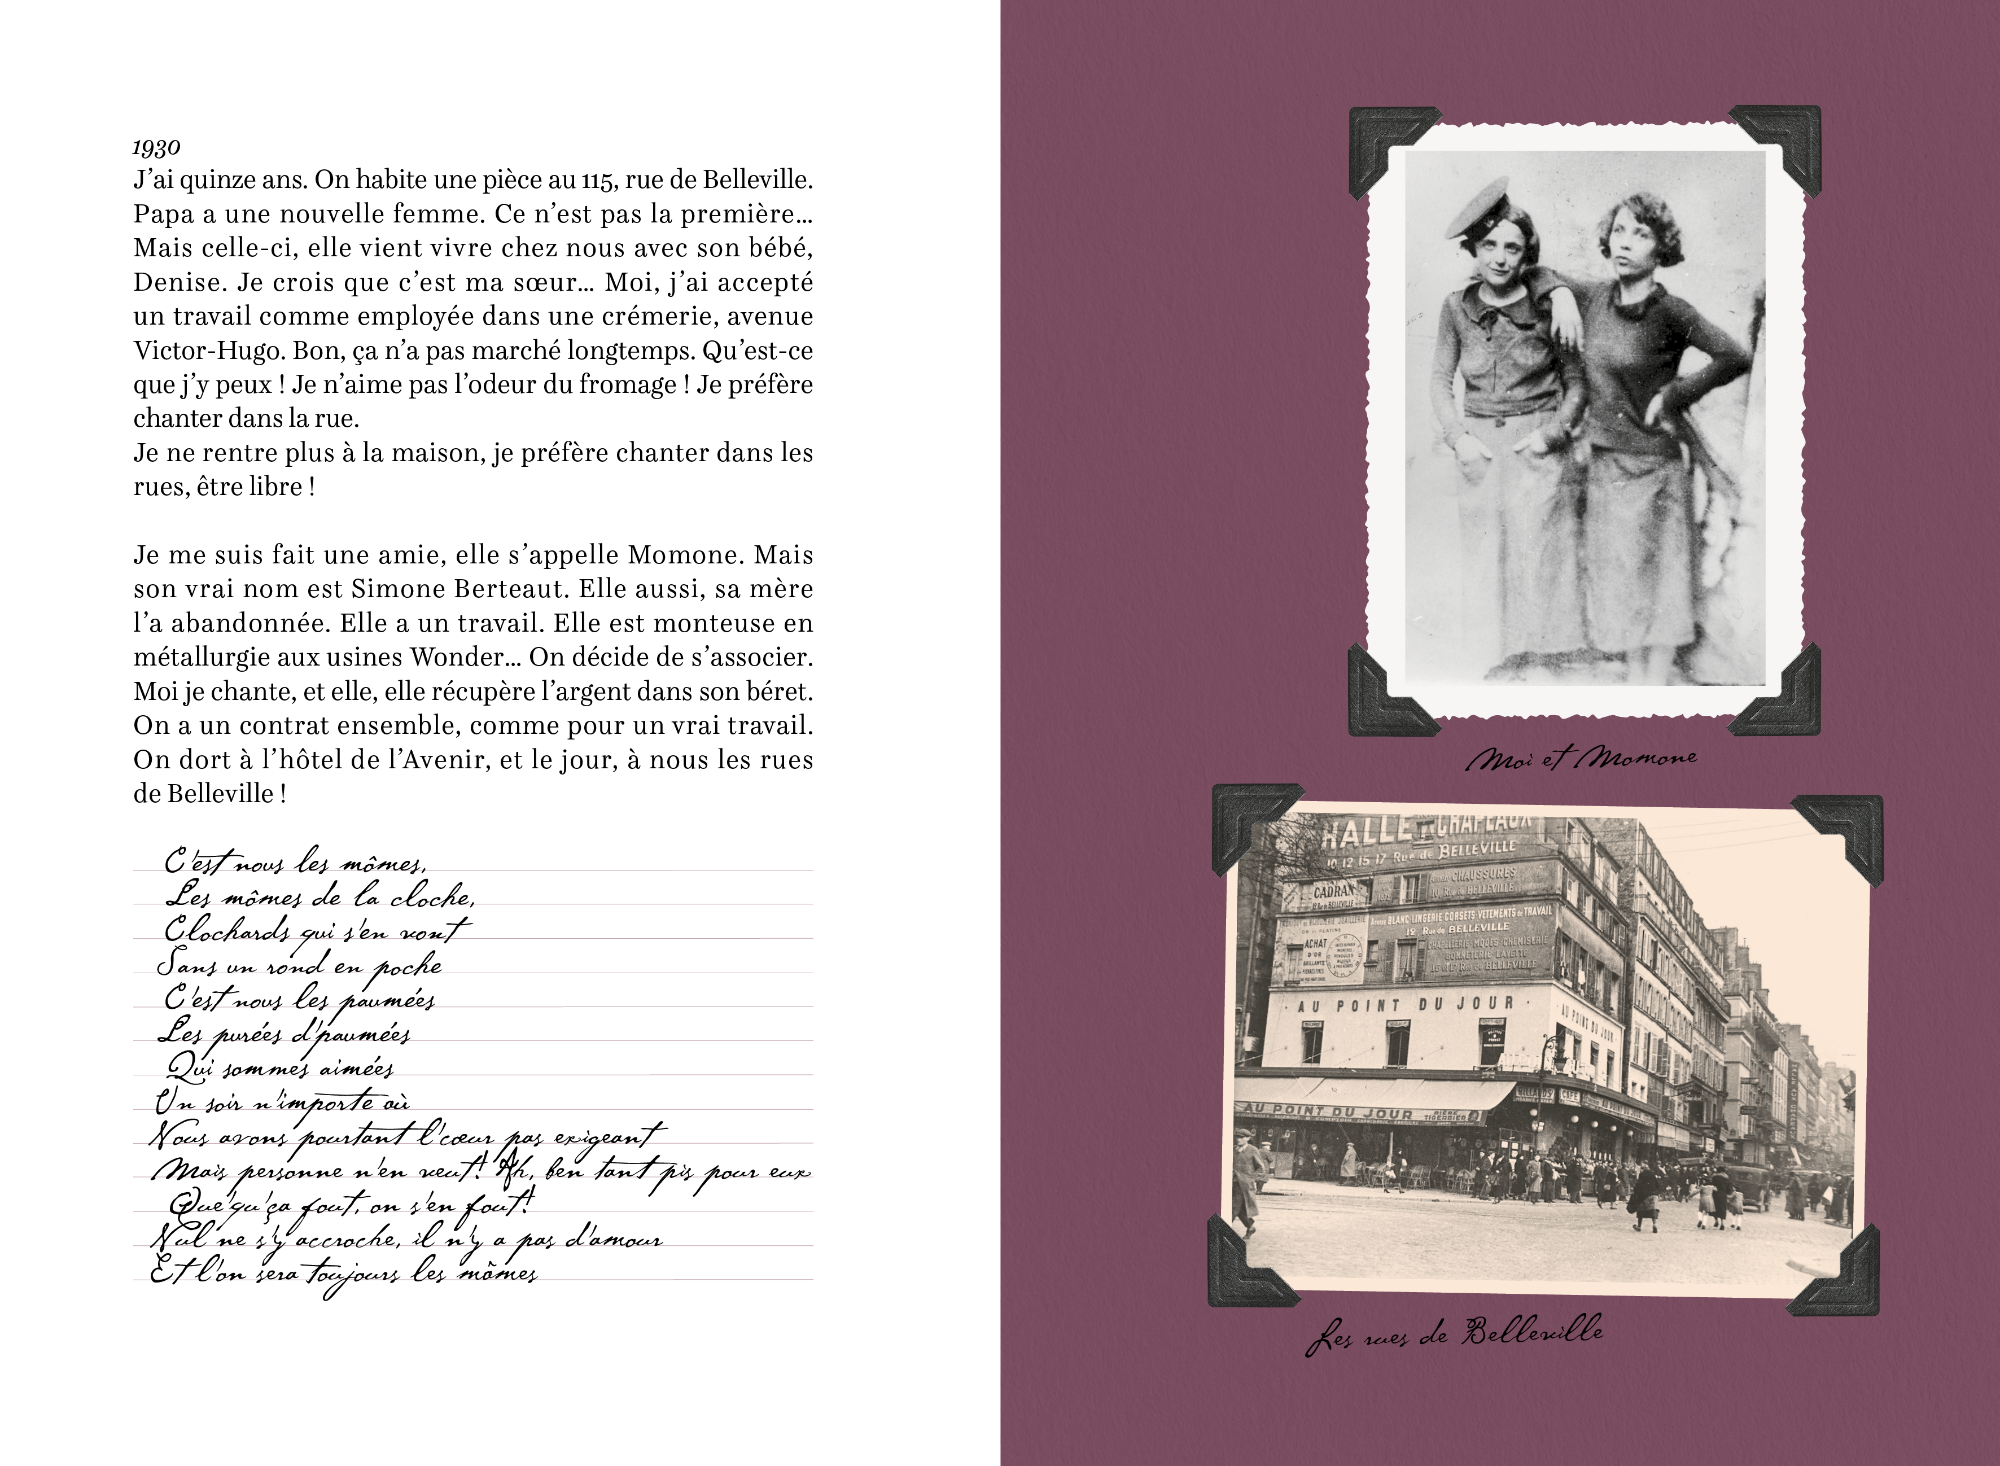 1930
J’ai quinze ans. On habite une pièce au 115, rue de Belleville.
Papa a une nouvelle femme. Ce n’est pas la première…
Mais celle-ci, elle vient vivre chez nous avec son bébé,
Denise. Je crois que c’est ma sœur… Moi, j’ai accepté
un travail comme employée dans une crémerie, avenue
Victor-Hugo. Bon, ça n’a pas marché longtemps. Qu’est-ce
que j’y peux ! Je n’aime pas l’odeur du fromage ! Je préfère
chanter dans la rue.
Je ne rentre plus à la maison, je préfère chanter dans les
rues, être libre !
Je me suis fait une amie, elle s’appelle Momone. Mais
son vrai nom est Simone Berteaut. Elle aussi, sa mère
l’a abandonnée. Elle a un travail. Elle est monteuse en
métallurgie aux usines Wonder… On décide de s’associer.
Moi je chante, et elle, elle récupère l’argent dans son béret.
On a un contrat ensemble, comme pour un vrai travail.
On dort à l’hôtel de l’Avenir, et le jour, à nous les rues
de Belleville !
C'est nous les mômes,
Les mômes de la cloche,
Clochards qui s'en vont
Sans un rond en poche
C'est nous les paumées
Les purées d'paumées
Qui sommes aimées
Un soir n'importe où
Nous avons pourtant l'cœur pas exigeant
Mais personne n'en veut! Ah, ben tant pis pour eux
Que'qu'ça fout, on s'en fout!
Nul ne s'y accroche, il n'y a pas d'amour
Et l'on sera toujours les mômes
Moi et Momone
HALLE AUX CHAPEAUX
10 12 15 17 Rue de BELLEVILLE
CHAUSSURES
Rue de BELLEVILLE
CADRAN
BLANC LINGERIE CORSETS VETEMENTS de TRAVAIL
12 Rue de BELLEVILLE
ACHAT
D'OR
BRILLANTS
CHAPELLERIE MODES CHEMISERIE
BONNETERIE LAYETTE
Rue de BELLEVILLE
AU POINT DU JOUR
AU POINT DU JOUR
BILLARDS
CAFÉ
AU POINT DU JOUR
BIÈRE
Les rues de Belleville